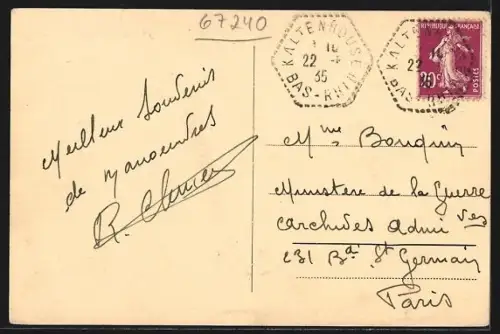 67240
KALTENHOUSE
1 10
22 -4
35
BAS-RHIN
KALTENHOUSE
22
BAS-RHIN
FRANÇAISE
20c
POSTES
Meilleur Souvenir
de Manoeuvres
R.
Mme Bouquin
Ministère de la Guerre
Archives Admi ves
231 Bd St Germain
Paris